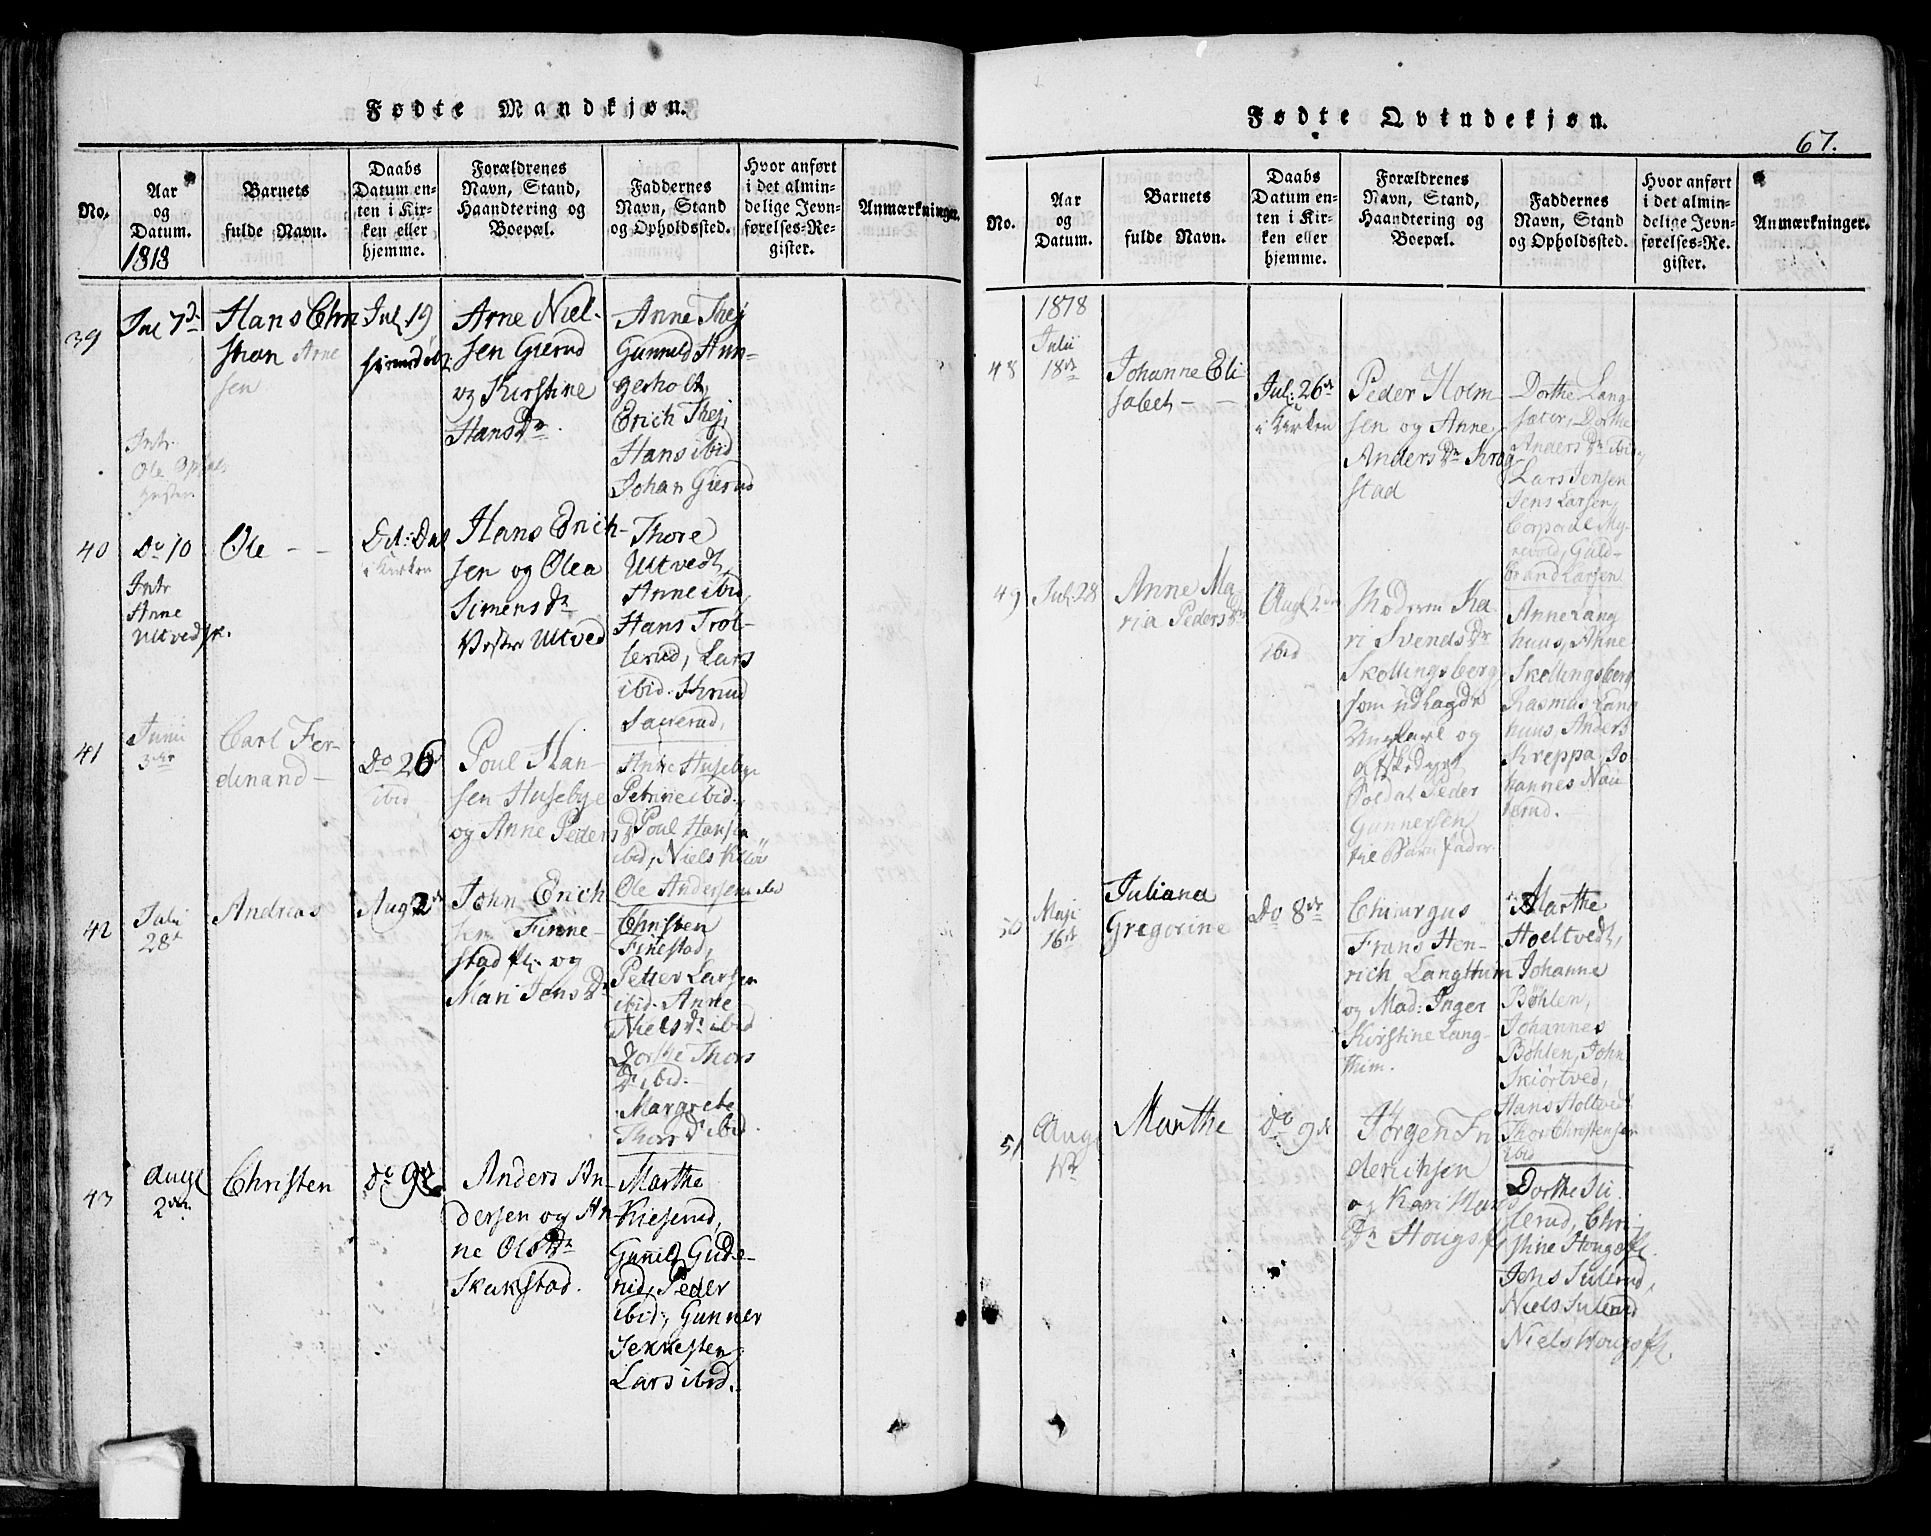 Fødte Mandkjøn.
No.
Aar
og
Datum.
1818
Barnets
fulde Navn.
Daabs
Datum en-
ten i Kir-
ken eller
hjemme.
Forældrenes
Navn, Stand,
Haandtering og
Boepæl.
Faddernes
Navn, Stand
og Opholdssted.
Hvor anført
i det almin-
delige Jevn-
førelses-Re-
gister.
Anmærkninger.
39
Jul 7d
Intr
Ole
Hans Chri
stian Arne
sen
Jul. 19
Arne Niel-
sen Gierud
og Kirstine
Hans Dr
Anne Thej
Gunnild Hun-
gerholt,
Erich Thej,
Hans ibid
Johan Gierud
40
Do 10
Intr
Anne
Ultvedt
Ole - -
Eod: Das
i Kirken
Hans Erich-
sen og Olea
Simens Dr
Vestre Ultved
Thore
Ultvedt,
Anne ibid,
Hans Trol-
lerud, Lars
ibid. Knud
Sauerud,
41
Junii
Carl Fer-
dinand -
Do 26
ibid
Poul Han-
sen Husebye
og Anne Peders Dr
Anne Husebye
Petrine ibid.
Poul Hansen
ibid, Niels
Ole Andersen
42
Juli
28
Andreas
Aug 2
John Erich
sen Finne-
stad og
Mari Jens Dr
Christen
Finestad,
Petter Larsen
ibid. Anne
Niels Dr ibid
Dorthe Thors
Dr ibid.
Margrete
Thors Dr ibid.
43
Augl
2den
Christen
Do 9d
Anders An-
dersen og An-
ne Ols Dr
Skakstad.
Marthe
Kieserud,
Gunild Gude-
rud, Peder
ibid; Gunner
Jekkesten
Lars ibid.
Fødte Qvindekjøn.
67.
No.
Aar
og
Datum.
Barnets
fulde Navn.
Daabs
Datum en-
ten i Kir-
ken eller
hjemme.
Forældrenes
Navn, Stand,
Haandtering og
Boepæl.
Faddernes
Navn, Stand
og Opholdssted.
Hvor anført
i det almin-
delige Jevn-
førelses-Re-
gister.
Anmærkninger.
1818
48
Julii
18d
Johanne Eli
sabet - -
Jul: 26d
i Kirken
Peder Holm
sen og Anne
Anders Dr Krog-
stad
Dorthe Lang
sæter, Dorthe
Anders Dr ibid
Lars Jensen
Jens Larsen
Corporal My-
revold, Guld-
brand Larsen
49
Jul. 28
Anne Ma
ria Peders Dr
Augl 2den
ibid
Moderen Ka
ri Svends Dr
Skollingsberg
som udlagde
Ungkarl og
afskediget
Soldat Peder
Gunnersen
til Barnefader
Anne Lang
huus, Anne
Skollingsberg
Rasmus Lang
huus, Anders
Kreppa, Jo
hannes Nau
terud.
50
Maji
16d
Juliana
Gregorine
Do 8de
Chirurgus
Frans Hen-
rich Langhum
og Mad: Inger
Kirstine Lang-
him.
Marthe
Holtvedt,
Johanne
Böhlen,
Johannes
Böhlen, John
Skiörtved,
Hans Holtvedt
Thor Christensen
ibid
51
Augl
1ste
Marthe
Do 9d
Jörgen Fri
derichsen
og Kari
Dr Hougs
Dorthe Su
lerud, Chri
stine Hougs
Jens Sulerud,
Niels Sulerud
Niels Hougs